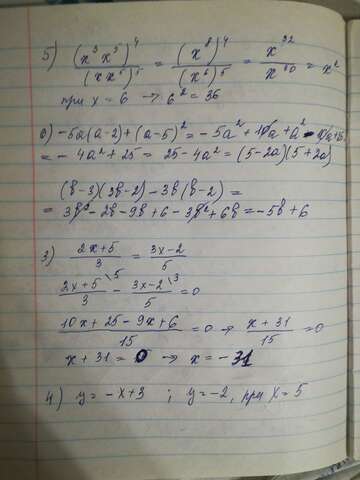 5) (x³x⁵)⁴/(xx⁵)⁵ = (x⁸)⁴/(x⁶)⁵ = x³²/x³⁰ = x²
при x = 6 → 6² = 36
-5a(a-2)+(a-5)² = -5a²+10a+a²-10a+25
= -4a²+25 = 25-4a² = (5-2a)(5+2a)
(b-3)(3b-2)-3b(b-2) =
= 3b²-2b-9b+6-3b²+6b = -5b+6
3) (2x+5)/3 = (3x-2)/5
(2x+5)/3 \5 - (3x-2)/5 \3 = 0
(10x+25-9x+6)/15 = 0 → (x+31)/15 = 0
x+31 = 0 → x = -31
4) y = -x+3 ; y = -2, при x = 5